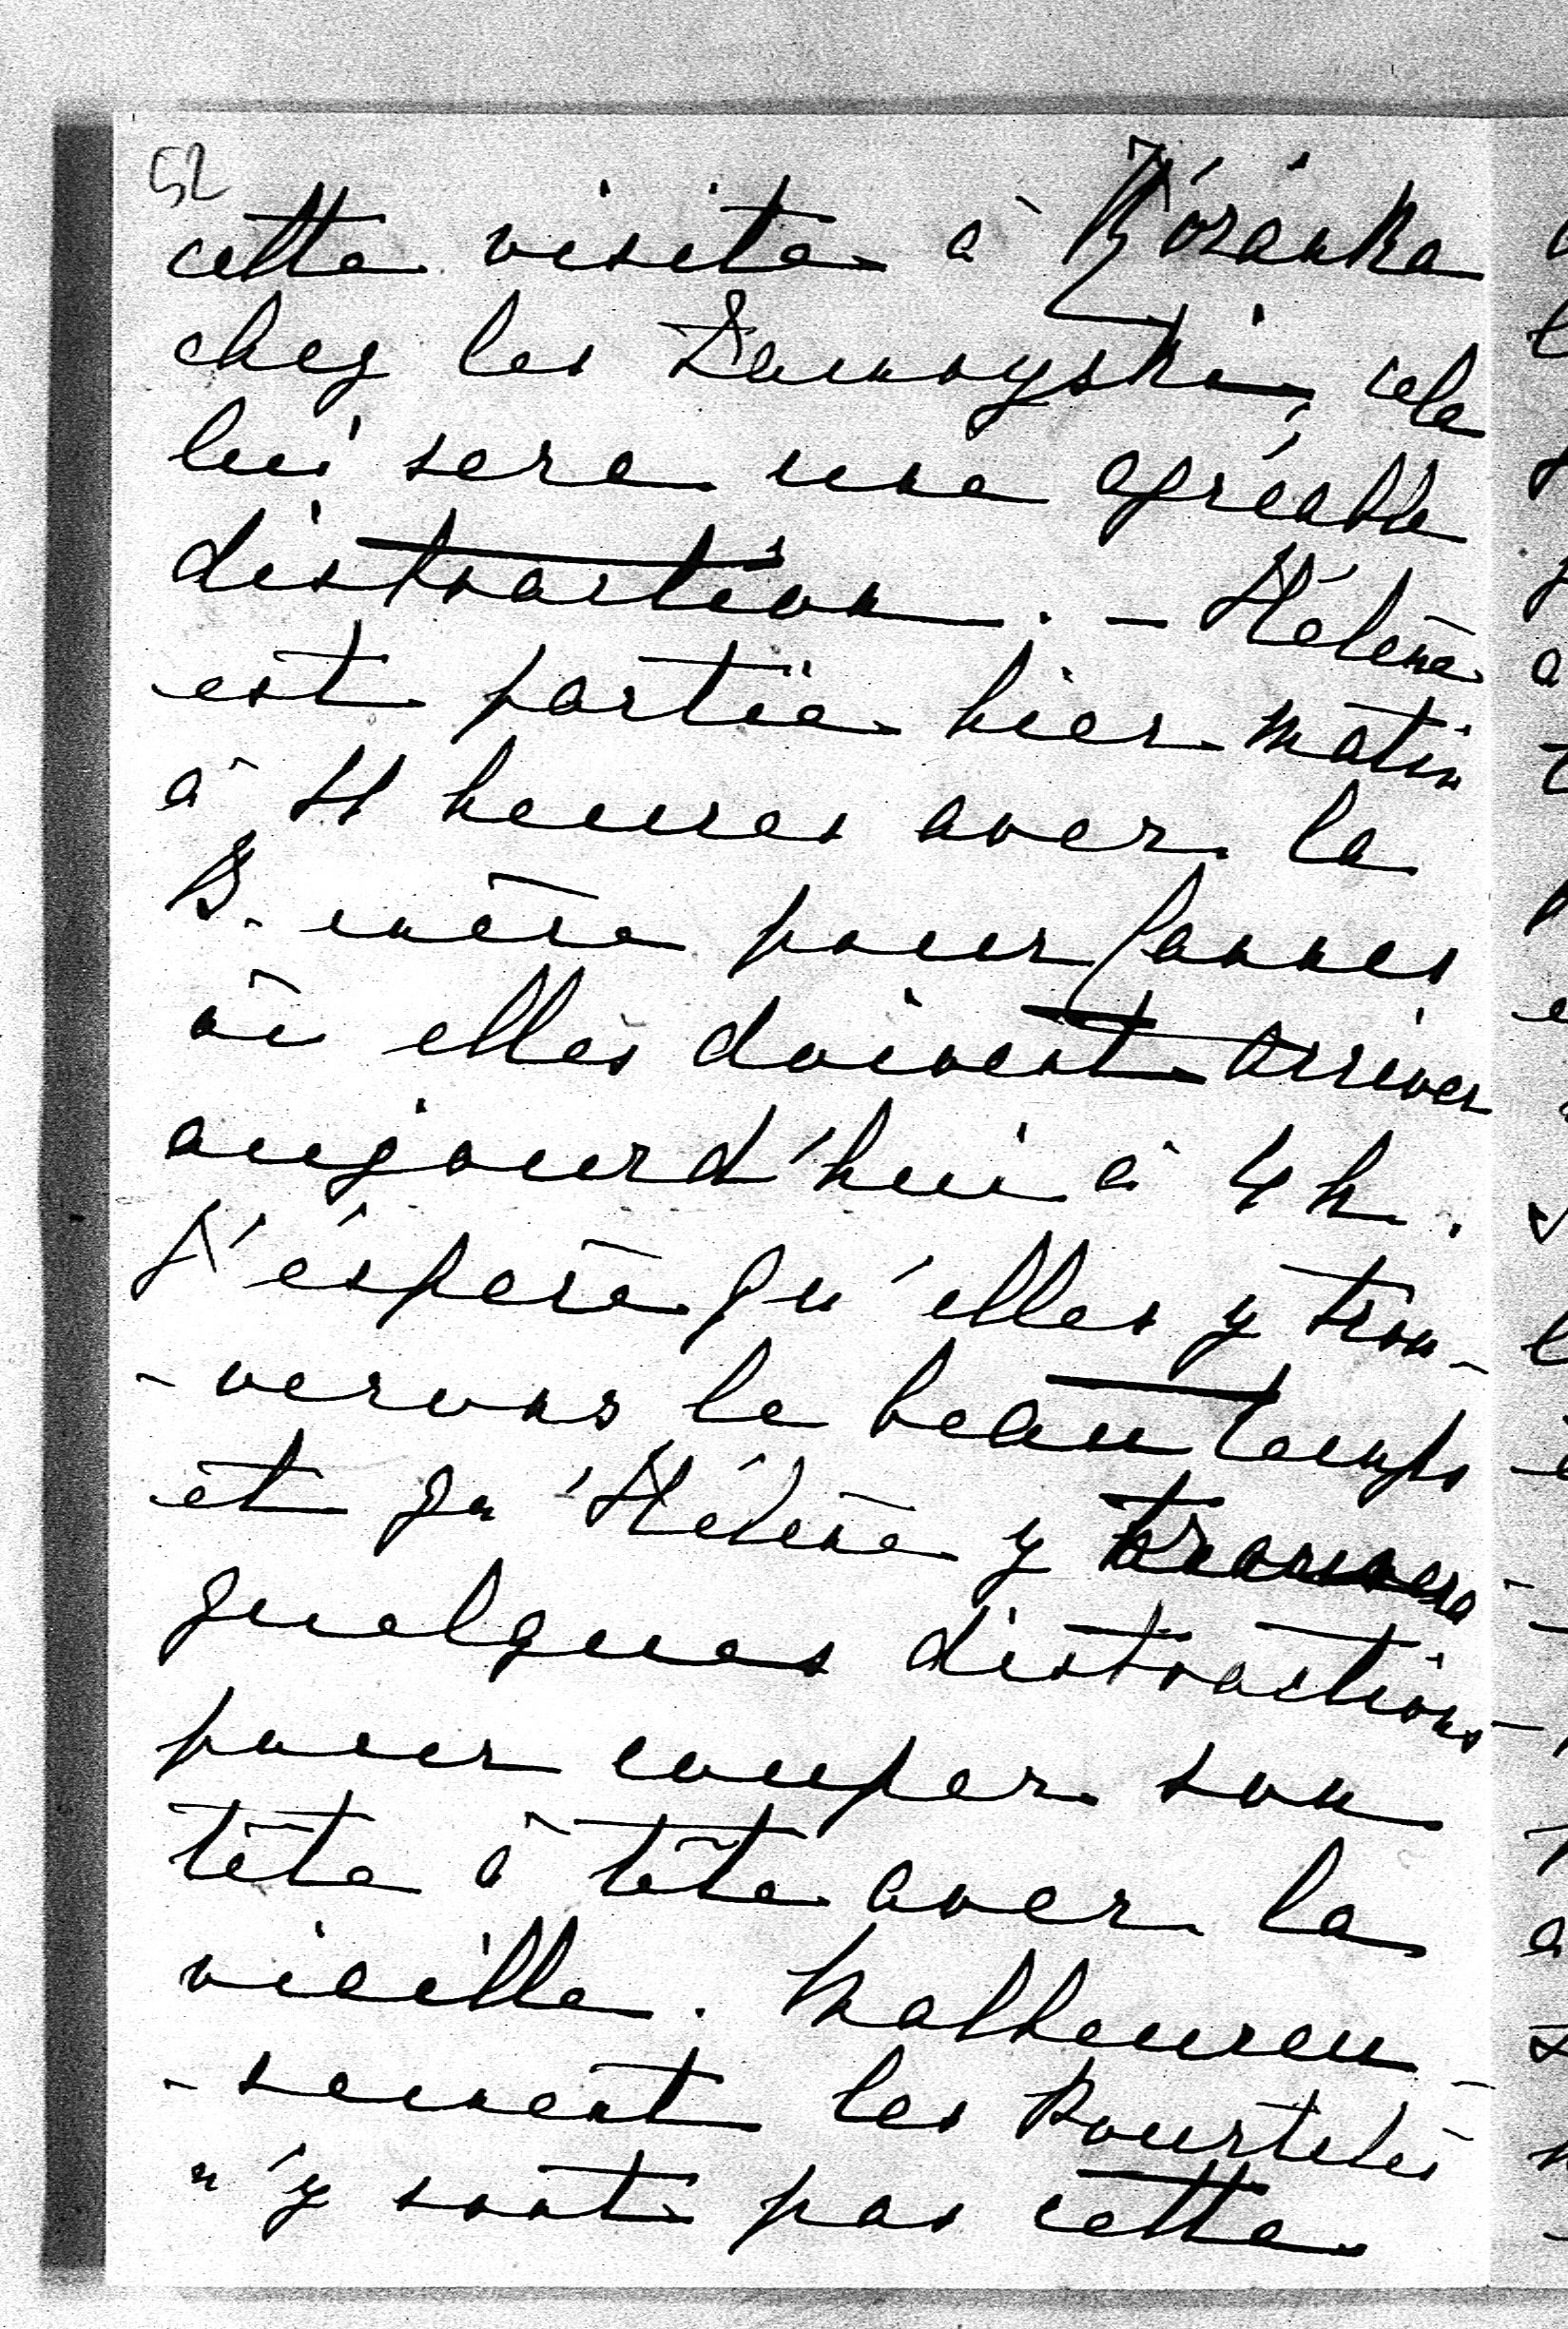 52
cette visite à Różanka
chez les Zamoyski, cela
lui sera une agréable
distraction. — Hélène
est partie hier matin
à 4 heures avec la
B. mère pour Cannes
où elles doivent arriver
aujourd'hui à 4 h.
J'éspère qu'elles y trou-
-verons le beau temps
et qu'Hélène y trouvera
quelques distractions
pour couper son
tête à tête avec la
vieille. Malheureu-
-sement les Pourtalès
n'y sont pas cette